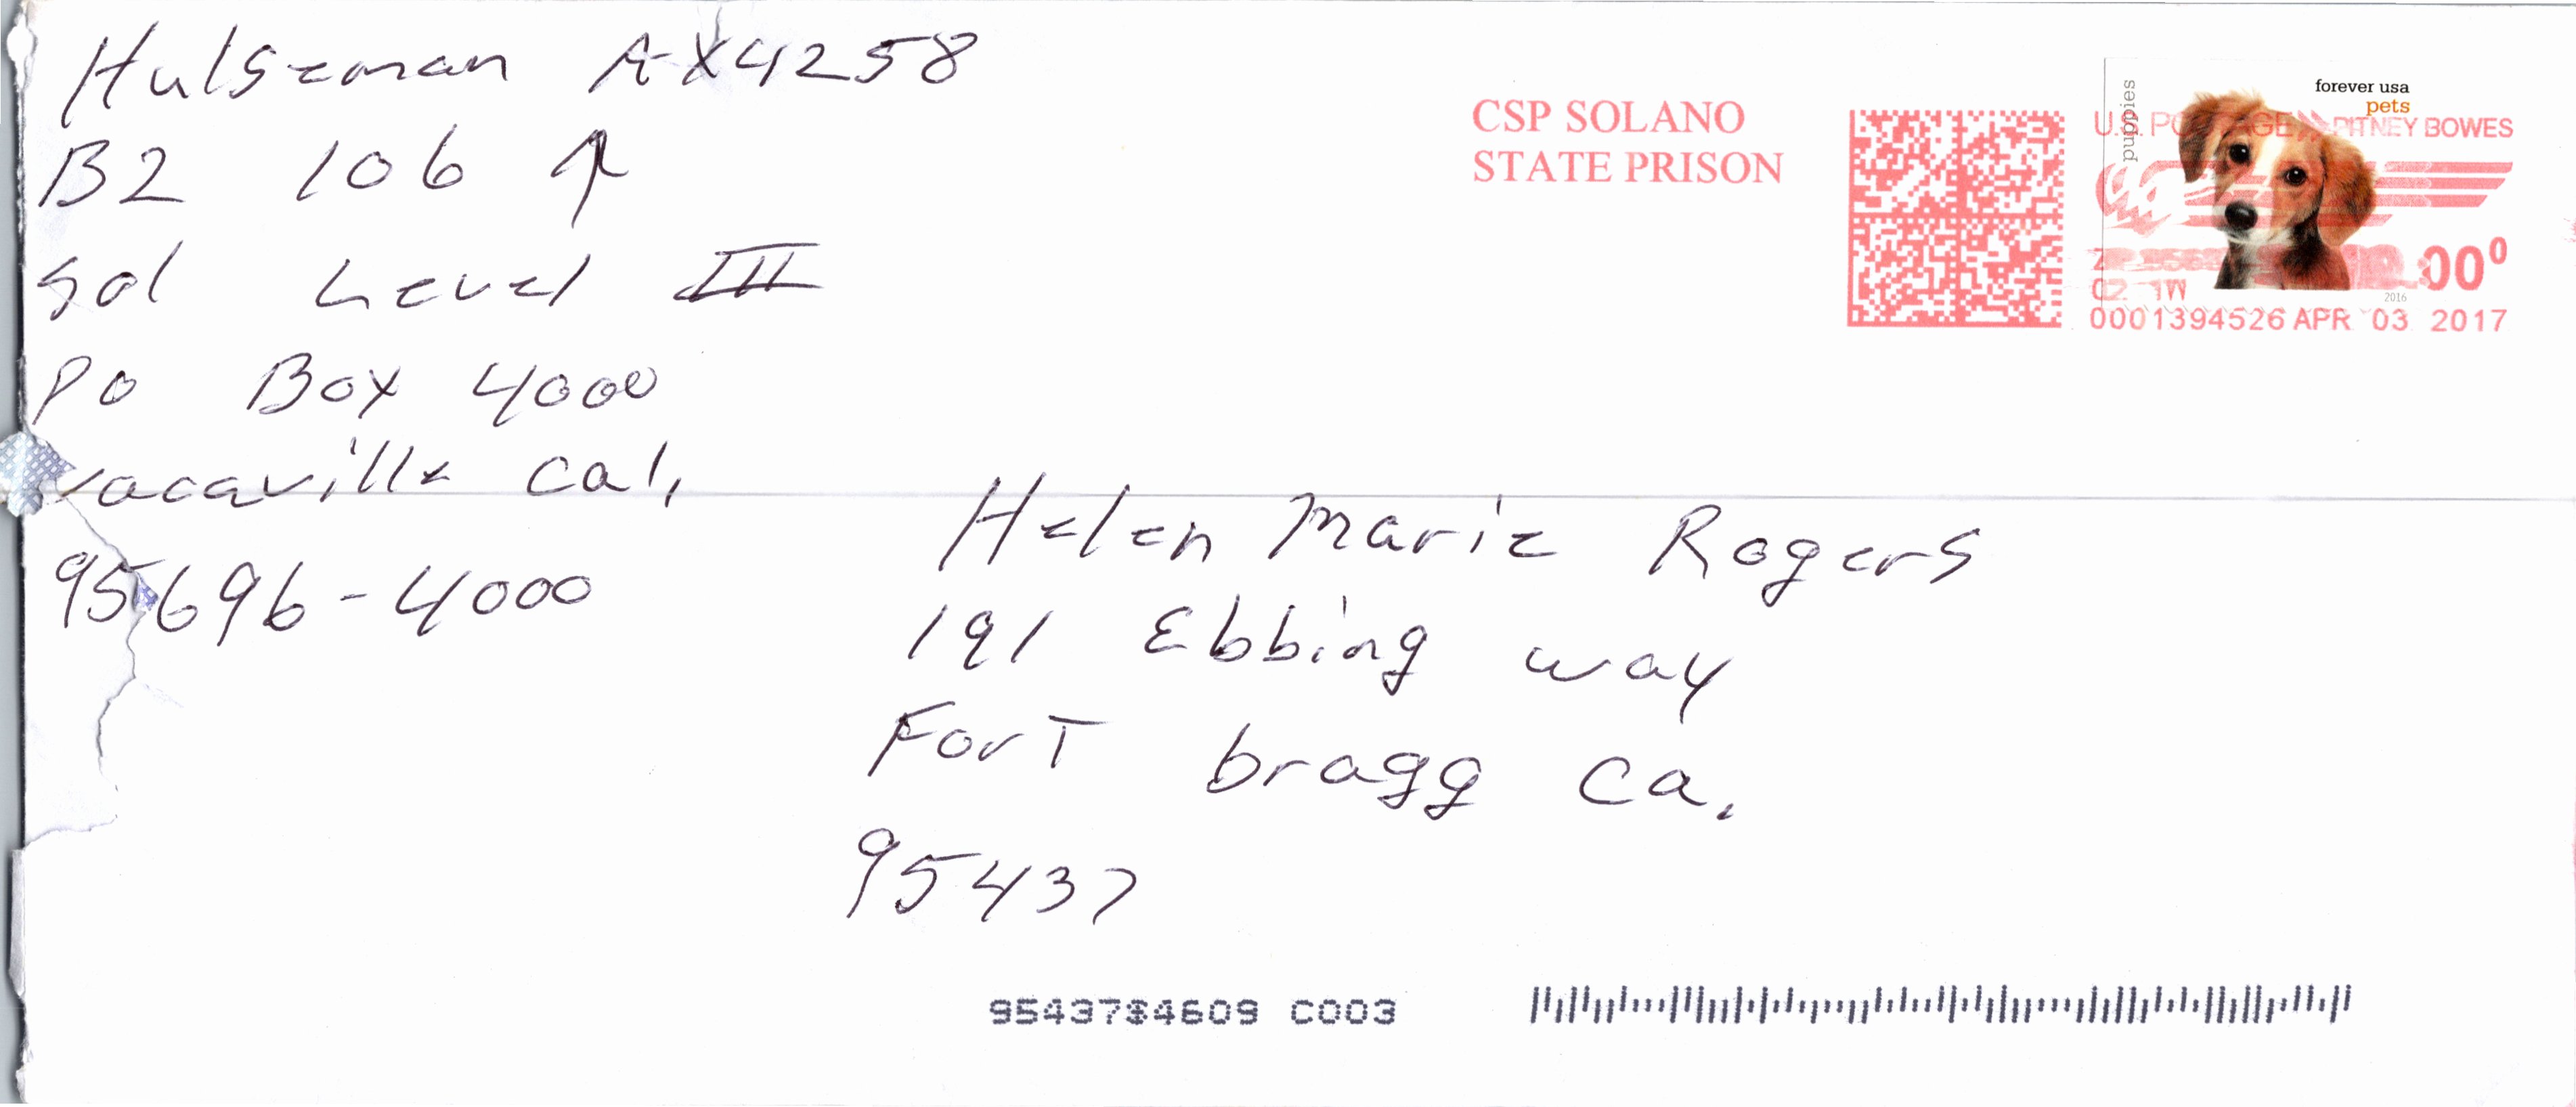 Hulseman AX4258
B2 106 ↑
Sol Level III
PO Box 4000
Vacaville Cal,
95696-4000
CSP SOLANO
STATE PRISON
puppies
forever usa
pets
U.S. POSTAGE PITNEY BOWES
00⁰
02 1W
2016
0001394526 APR 03 2017
Helen Marie Rogers
191 Ebbing way
Fort bragg Ca.
95437
95437$4609 C003